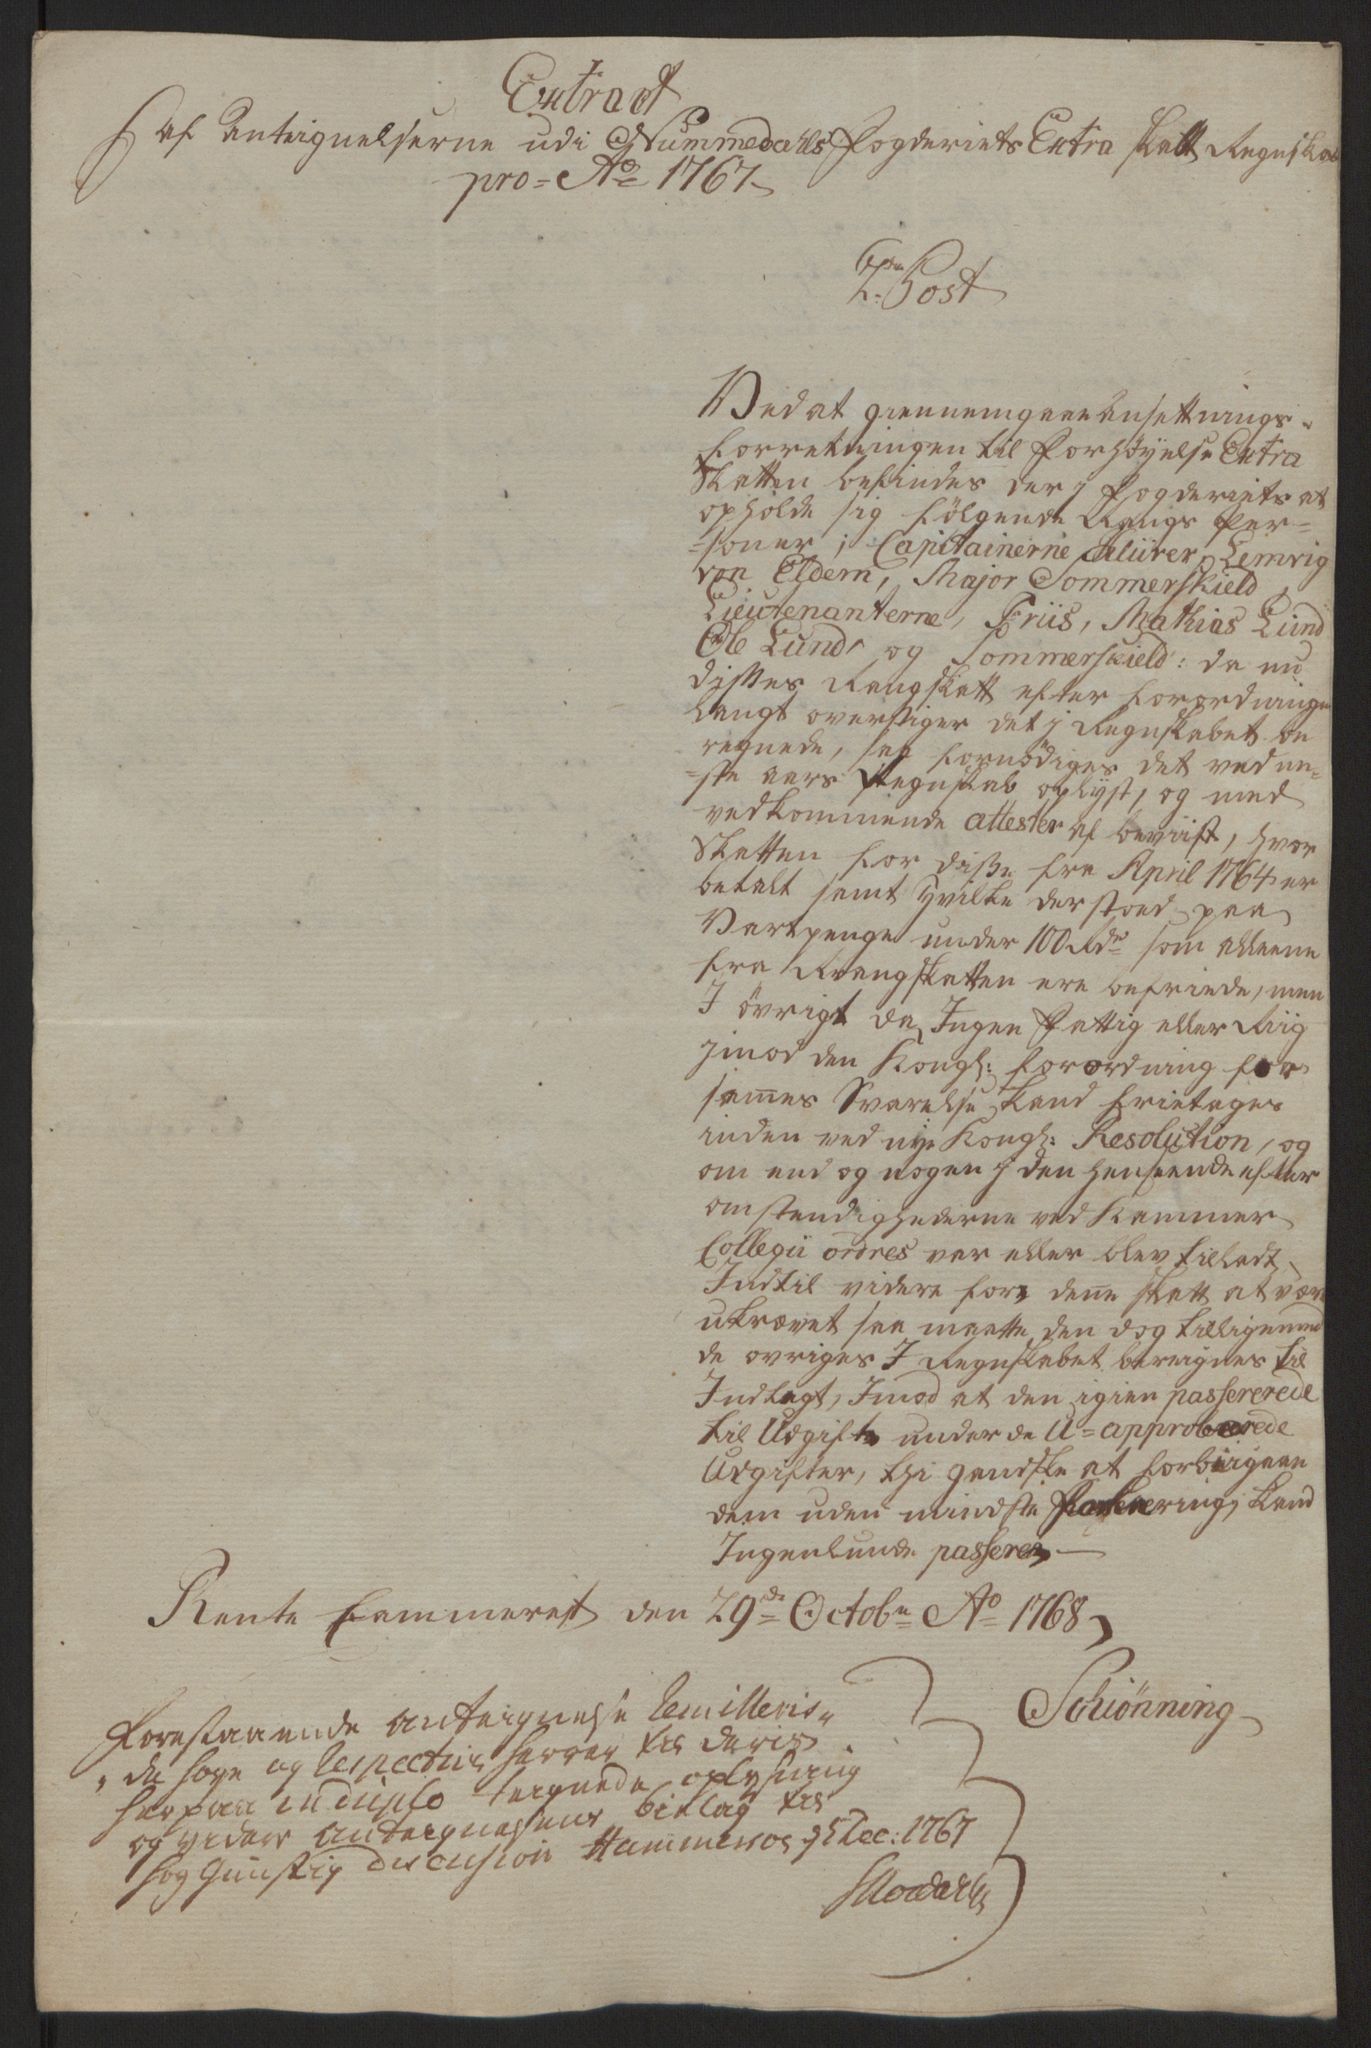 Extract
af Antegnelserne udi Nummedalls Fogderiets Extra Skatt Regnskab
pro = Ao 1767
2den Post
Ved at giennemgaae Ansettnings-
forretningen til Forhöyelse Extra
Skatten befindes der j Fogderiets at
opholde sig fölgende Rangs Per-
-soner ; Capitainerne Lemvig
von Eldern, Major Sommerskield
Lieutenanterne, Friis, Mathias Lund
Ole Lund og Sommerskield: da nu
disses Rangskatt efter forordningen
langt overstiger det j Regnskabet be
regnede, saa fornödiges det ved næ-
-ste aars Regnskab oplyst, og med
vedkommende attester af beviist, hvor
Skatten for disse fra April 1764 er
betalt samt hvilke der stoed paa
Vartpenge under 100 Rdr som alleene
fra Rangskatten ere befriede, men
I övrigt da Ingen Fattig eller Riig
jmod den Kongl: forordning for
sames Svarelse kand fritages
uden ved nye Kongl: Resolution, og
om end og nogen j den henseende efter
omstendighederne ved Kammer
Collegii ordres var eller blev tilladt
Indtil videre for denne skatt at være
ukrævet saa maatte den dog tilligemed
de övriges I Regnskabet beregnes til
Indtegt, Imod at den igien passererede
til Udgift under de U=approberede
Udgifter, thi gandske at forbiigaae
dem uden mindste kand
Ingenlunde passeres
Rente Cammeret den 29de Octobr Ao 1768
Schiønning
Forestaaende Antegnelse remitteris
de höye og respective Herrer til deris
herpaa in duplo tegnede oplysning
og videre Antegnelsens bielag til
höygunstig decision Hammeroe 5 Dec: 1767